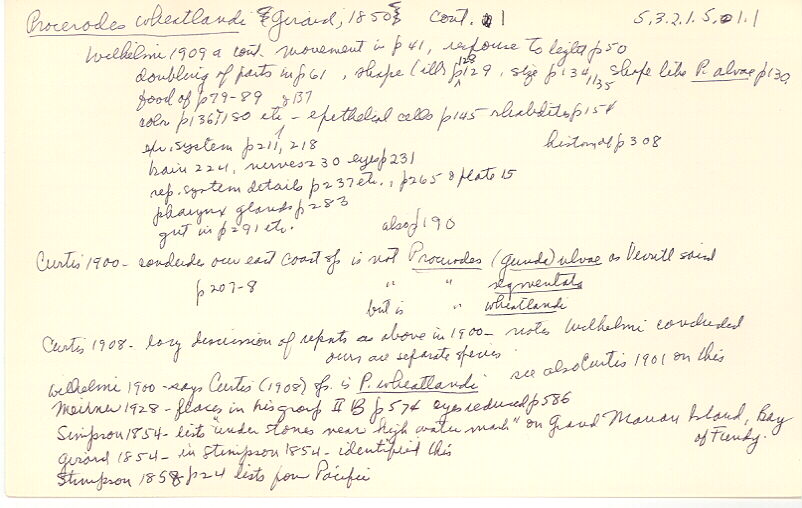 Procerodes wheatlandi {Girard, 1850} cont. 1 5.3.2.1.5.01.1
Wilhelmi 1909 a cont. movement in p 41, response to light p 50
doubling of parts in p 61, shape (ills p 128 129, size p 134, 135 shape like P. ulvae p 130
food of p 79-89 & 137
color p 136, 180 etc - epithelial cells p 145 rhabdites p 154
ex. system p 211, 218 histomol p 308
brain 224, nerves 230 eyes p 231
rep. system details p 237 etc., p 265 & plate 15
pharynx glands p 283
gut in p 291 etc. also p 190
Curtis 1900 - concludes our east coast sp is not Procerodes (Gunda) ulvae as Verrill said
p 207-8 " " segmentata
but is " wheatlandi
Curtis 1908 - long discussion of repents as above in 1900 - notes Wilhelmi concluded
ours are separate species
see also Curtis 1901 on this
Wilhelmi 1900 - says Curtis (1908) sp. is P. wheatlandi
Meixner 1928 - places in his group II B p 574 eyes reduced p 586
Simpson 1854 - lists "under stones near high water mark" on Grand Manan Island, Bay
of Fundy.
Girard 1854 - in Stimpson 1854 - identified this
Stimpson 1858 p 24 lists from Pacific